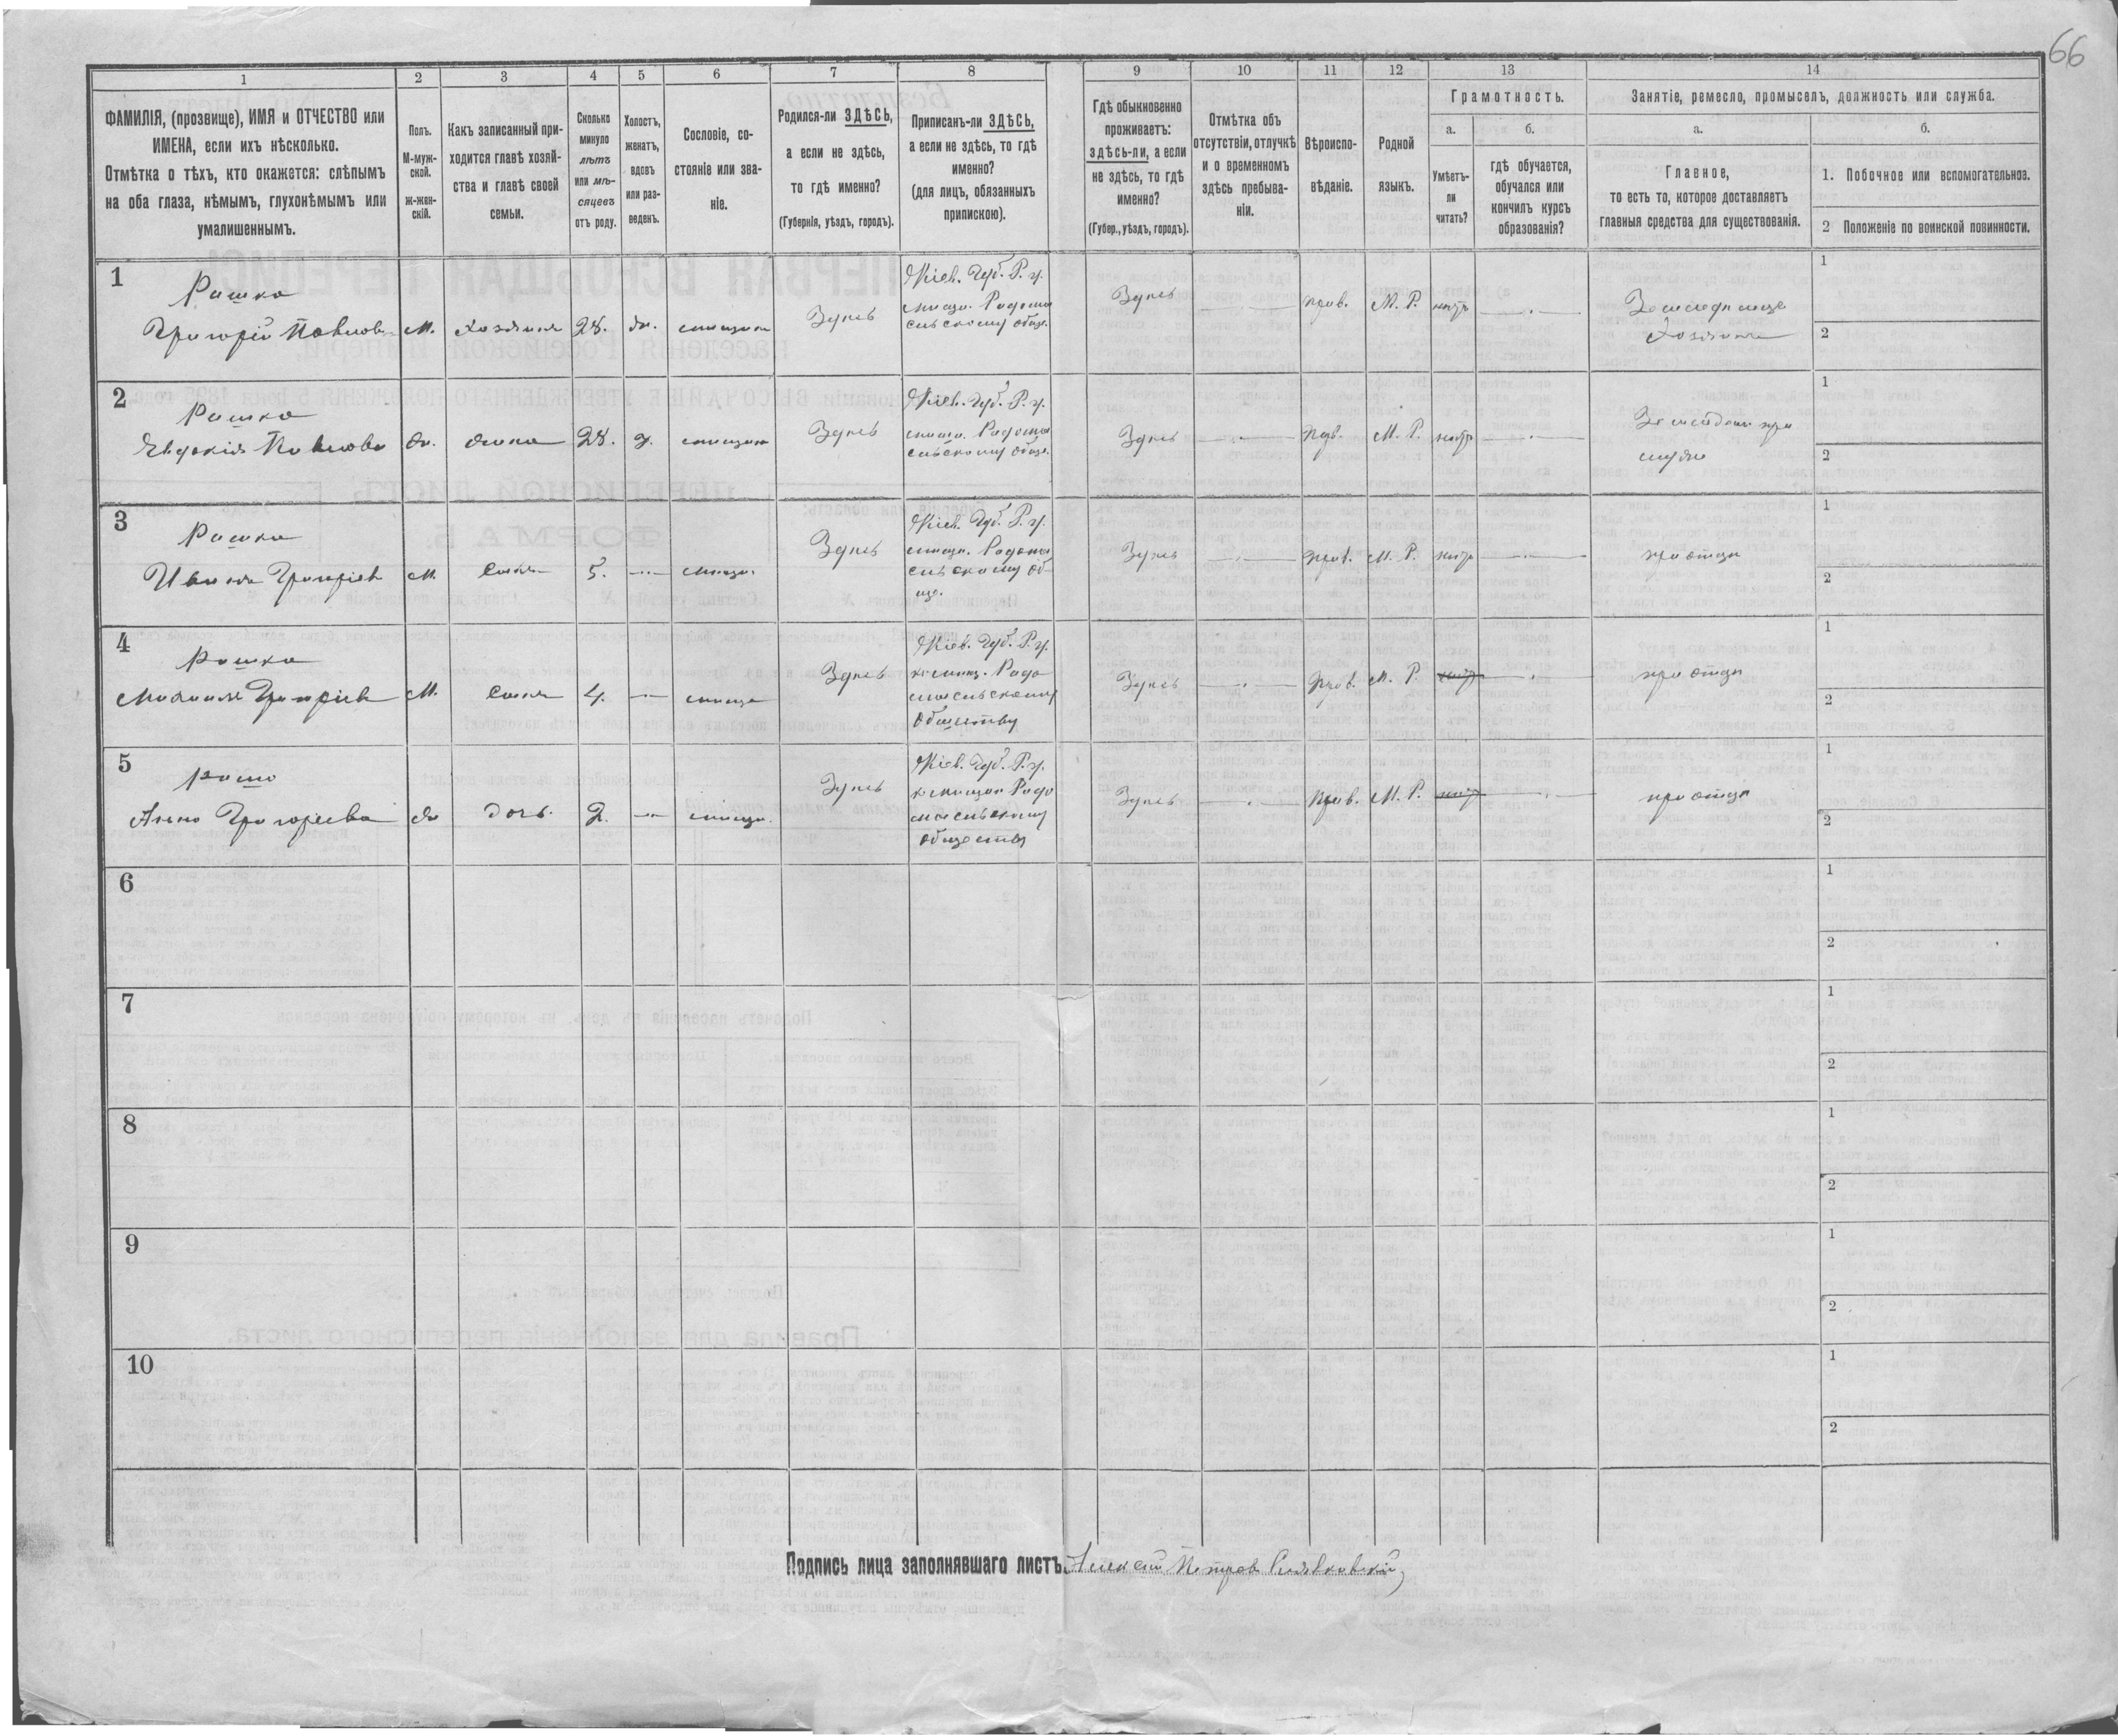 66
1 2 3 4 5 6 7 8 9 10 11 12 13 14
ФАМИЛІЯ, (прозвище), ИМЯ и ОТЧЕСТВО или
ИМЕНА, если ихъ нѣсколько.
Отмѣтка о тѣхъ, кто окажется: слѣпымъ
на оба глаза, нѣмымъ, глухонѣмымъ или
умалишеннымъ.
Полъ.
М-муж-
ской.
ж-жен-
скій.
Какъ записанный при-
ходится главѣ хозяй-
ства и главѣ своей
семьи.
Сколько
минуло
лѣтъ
или мѣ-
сяцевъ
отъ роду.
Холостъ,
женатъ,
вдовъ
или раз-
веденъ.
Сословіе, со-
стояніе или зва-
ніе.
Родился-ли ЗДѢСЬ,
а если не здѣсь,
то гдѣ именно?
(Губернія, уѣздъ, городъ).
Приписанъ-ли ЗДѢСЬ,
а если не здѣсь, то гдѣ
именно?
(для лицъ, обязанныхъ
припискою).
Гдѣ обыкновенно
проживаетъ:
здѣсь-ли, а если
не здѣсь, то гдѣ
именно?
(Губер., уѣздъ, городъ).
Отмѣтка объ
отсутствіи, отлучкѣ
и о временномъ
здѣсь пребыва-
ніи.
Вѣроиспо-
вѣданіе.
Родной
языкъ.
Грамотность.
а.
Умѣетъ-
ли
читать?
б.
гдѣ обучается,
обучался или
кончилъ курсъ
образованія?
Занятіе, ремесло, промыселъ, должность или служба.
а.
Главное,
то есть то, которое доставляетъ
главныя средства для существованія.
б.
1. Побочное или вспомогательное.
2 Положеніе по воинской повинности.
1
Рашка
Григорій Павлов
м.
хозяинъ
28.
ж.
мѣщан
Здѣсь
Кіев. Губ. Р. у.
мѣщ. Радомы
сльскому общ.
Здѣсь
прав.
М. Р.
нѣтъ
Земледѣлецъ
Хозяинъ
1
2
2
Рашка
Евдокія Павлова
ж.
жена
28.
з.
мѣщан
Здѣсь
Кіев. Губ. Р. у.
мѣщ. Радомы
сльскому общ.
Здѣсь
прав.
М. Р.
нѣтъ
при
мужѣ
1
2
3
Рашка
Иванъ Григоріев
М.
Сынъ
5.
мѣщ.
Здѣсь
Кіев. Губ. Р. у.
мѣщ. Радомы
сльскому об-
що.
Здѣсь
прав.
М. Р.
нѣтъ
при отцѣ
1
2
4
Рашка
Григоріев
М.
Сынъ
4.
мѣща
Здѣсь
Кіев. Губ. Р. у.
къ мѣщ. Радо
мысльскому
Обществу
Здѣсь
прав.
М. Р.
нѣтъ
при отцѣ
1
2
5
Рашко
Анна Григорьева
ж
дочь.
2.
мѣща.
Здѣсь
Кіев. Губ. Р. у.
къ мѣщан Радо
мысльскому
обществу
Здѣсь
прав.
М. Р.
нѣтъ
при отцѣ
1
2
6
1
2
7
1
2
8
1
2
9
1
2
10
1
2
Подпись лица заполнявшаго листъ. Алексѣй Петров